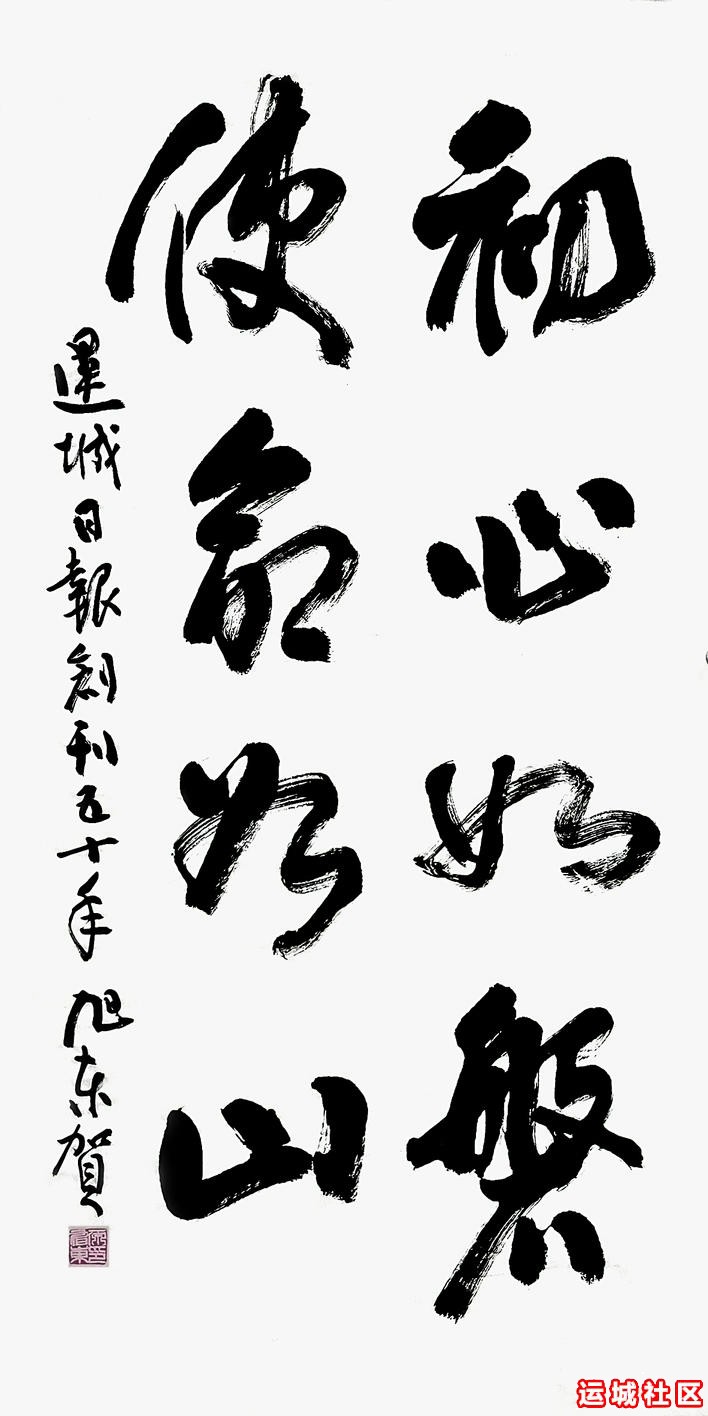 初心如磐
使命如山
運城日報創刊五十年 旭东賀
运城社区